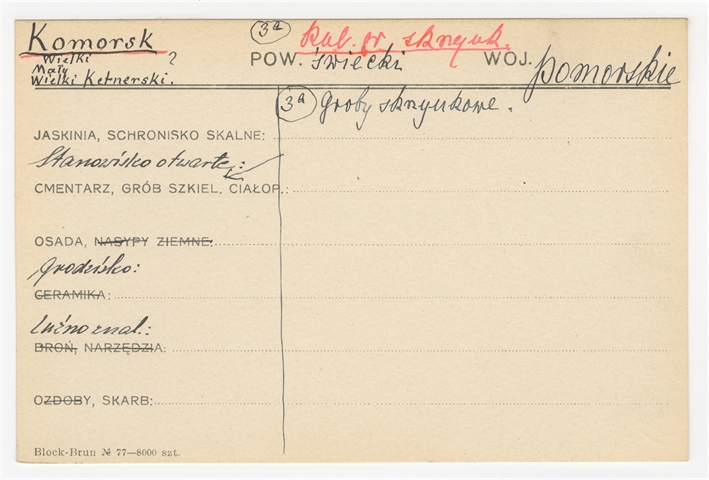 Komorsk
Wielki ?
Mały
Wielki Ketnerski.
3a kul. gr. skrzynk.
POW. świecki WOJ. pomorskie
3a groby skrzynkowe.
JASKINIA, SCHRONISKO SKALNE:
Stanowisko otwarte:
CMENTARZ, GRÓB SZKIEL. CIAŁOP.:
OSADA, NASYPY ZIEMNE:
grodzisko:
CERAMIKA:
Luźno znal.:
BROŃ, NARZĘDZIA:
OZDOBY, SKARB:
Block-Brun № 77—8000 szt.